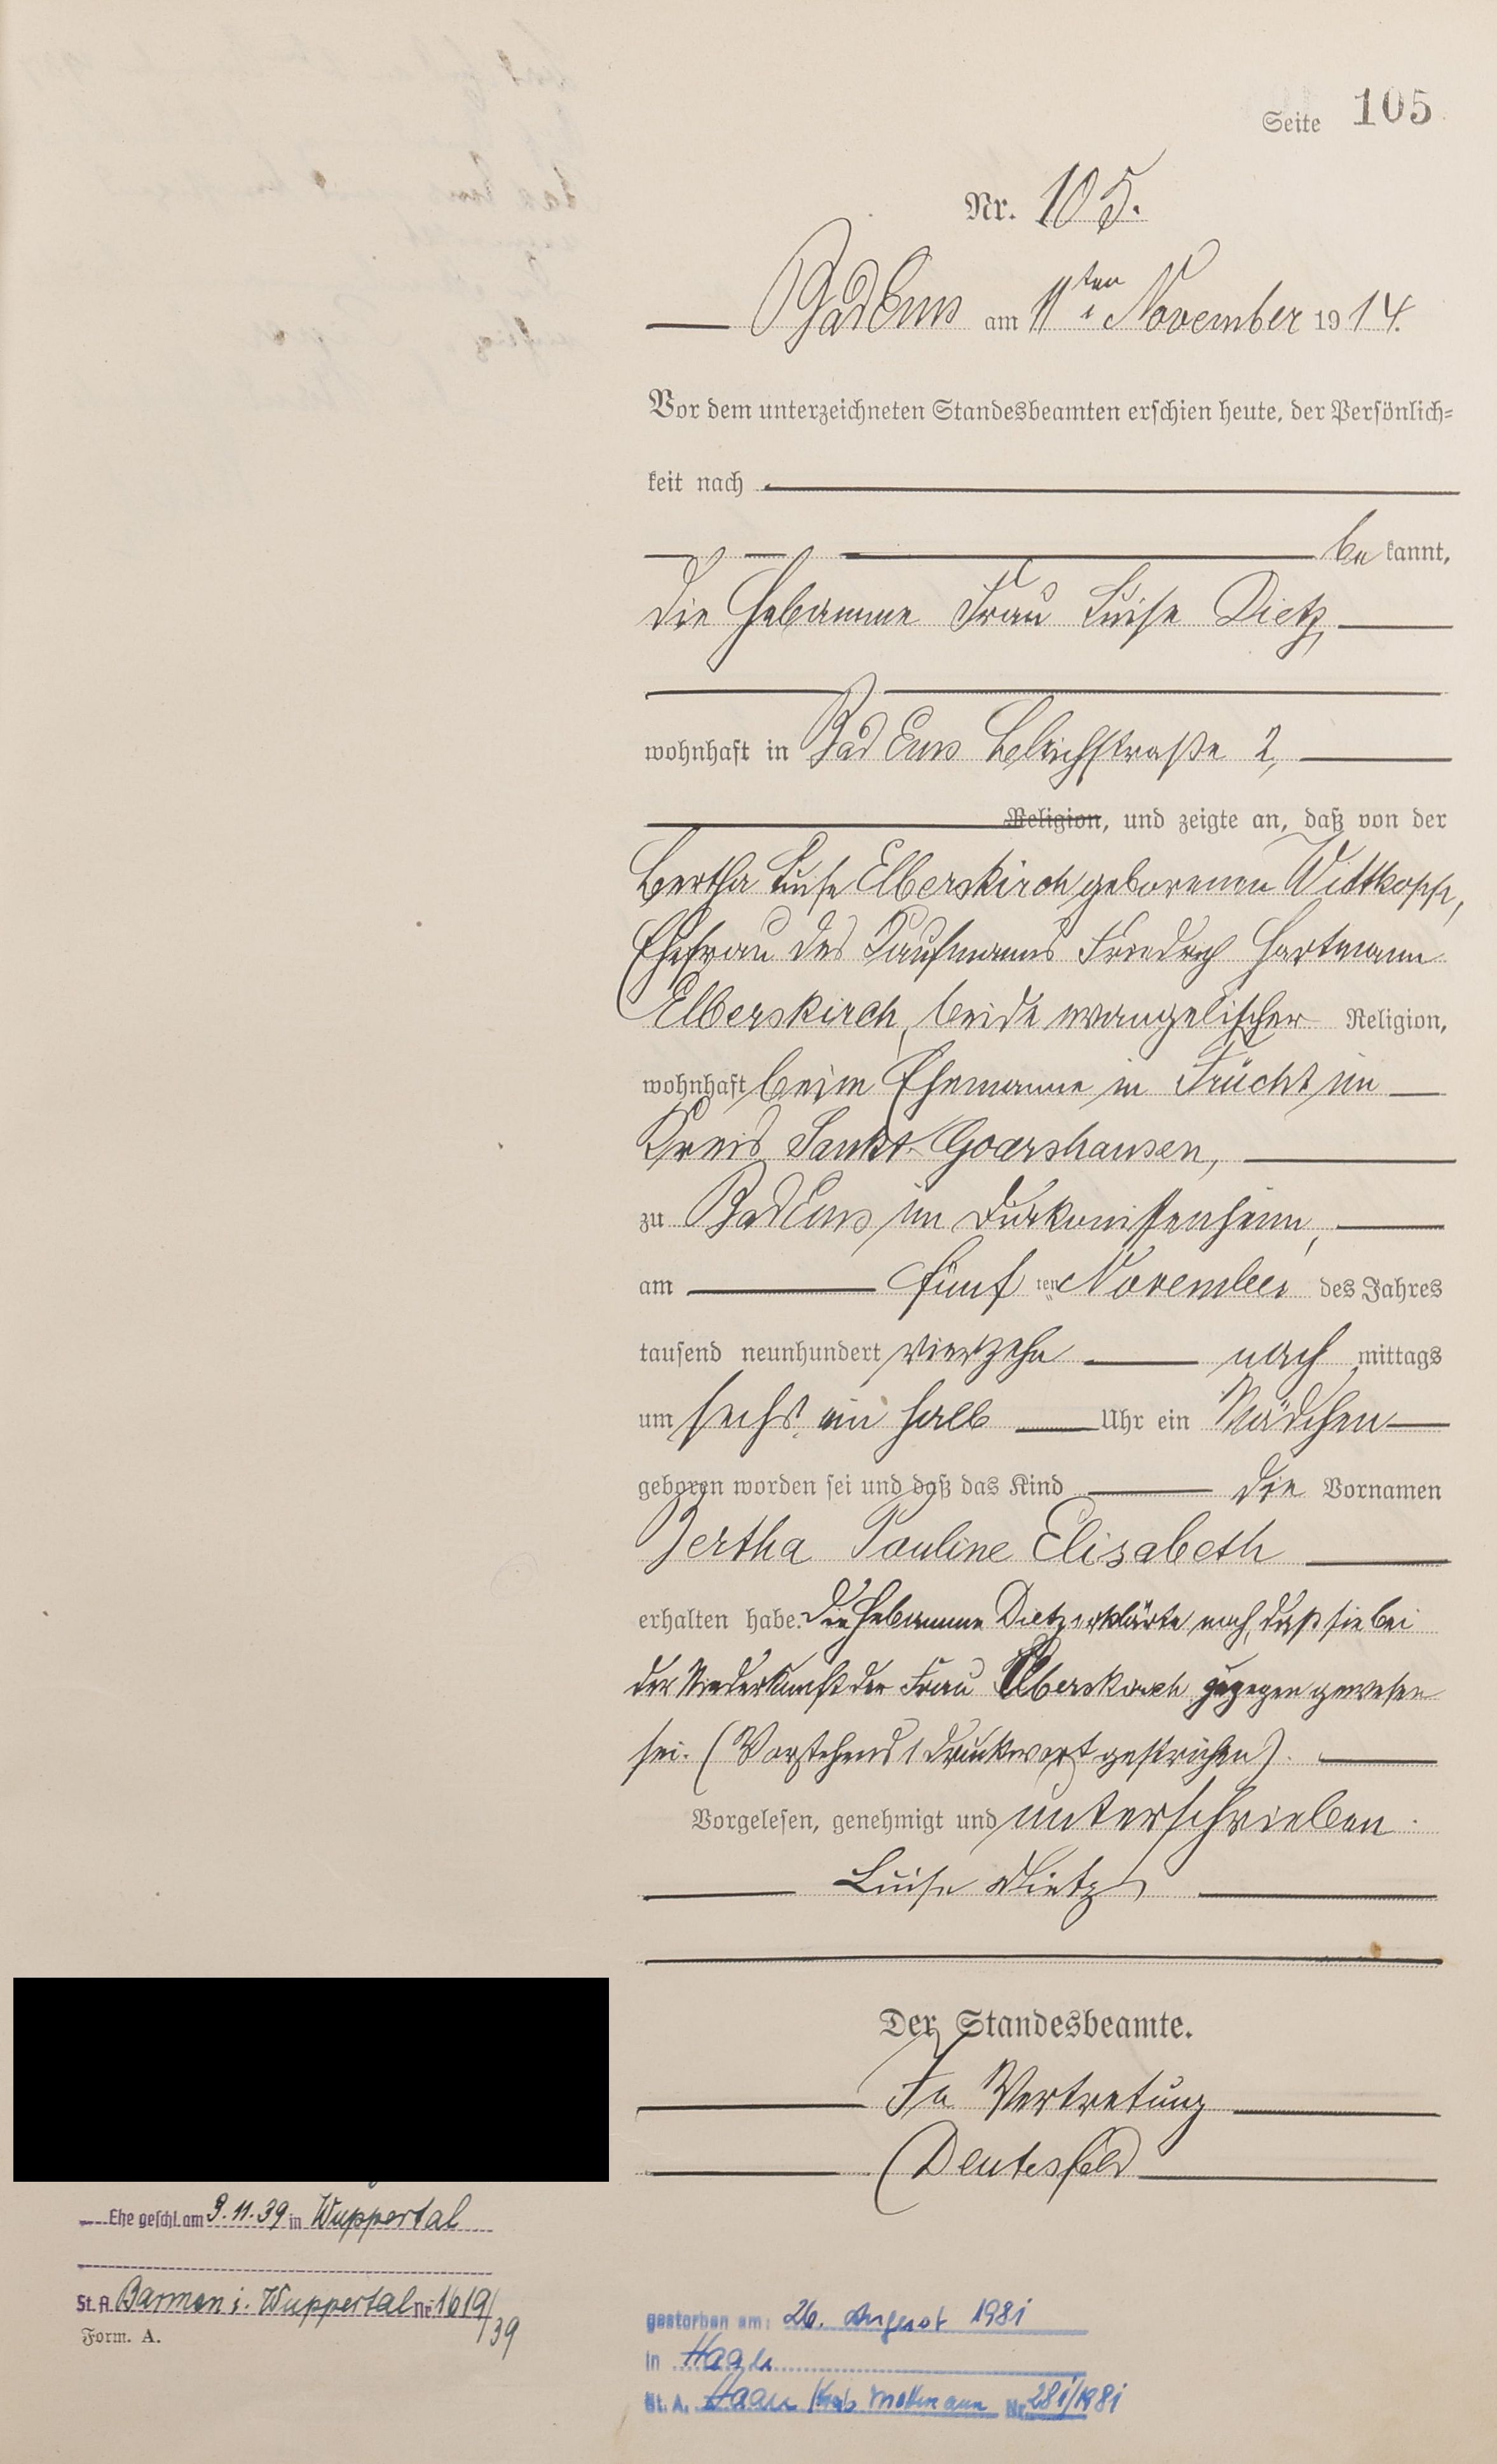 Seite 105
Nr. 105.
Bad Ems am 11ten November 1914.
Vor dem unterzeichneten Standesbeamten erschien heute, der Persönlich=
keit nach
be kannt,
die Hebamme Frau Luise Dietz,
wohnhaft in Bad Ems 2,
Religion, und zeigte an, daß von der
Bertha Luise Elberskirch geborenen Wittkopp,
Ehefrau des Kaufmanns Friedrich Hartmann
Elberskirch, beide evangelischer Religion,
wohnhaft beim Ehemanne in Frücht im
Kreis Sankt Goarshausen,
zu Bad Ems im Diakonissenheim,
am fünf ten November des Jahres
tausend neunhundert vierzehn nach mittags
um sechs ein halb Uhr ein Mädchen
geboren worden sei und daß das Kind die Vornamen
Bertha Pauline Elisabeth
erhalten habe. Die Hebamme Dietz erklärte noch, daß sie bei
der Niederkunft der Frau Elberskirch zugegen gewesen
sei. (Vorstehend 1 Druckwort gestrichen).
Vorgelesen, genehmigt und unterschrieben.
Luise Dietz
Der Standesbeamte.
In Vertretung
Deutesfeld
Ehe geschl. am 9.11.39 in Wuppertal
St. A. Barmen i. Wuppertal Nr 1619/39
Form. A.
gestorben am: 26. August 1981
in Haan
St. A. Haan Mettmann Nr. 281/1981